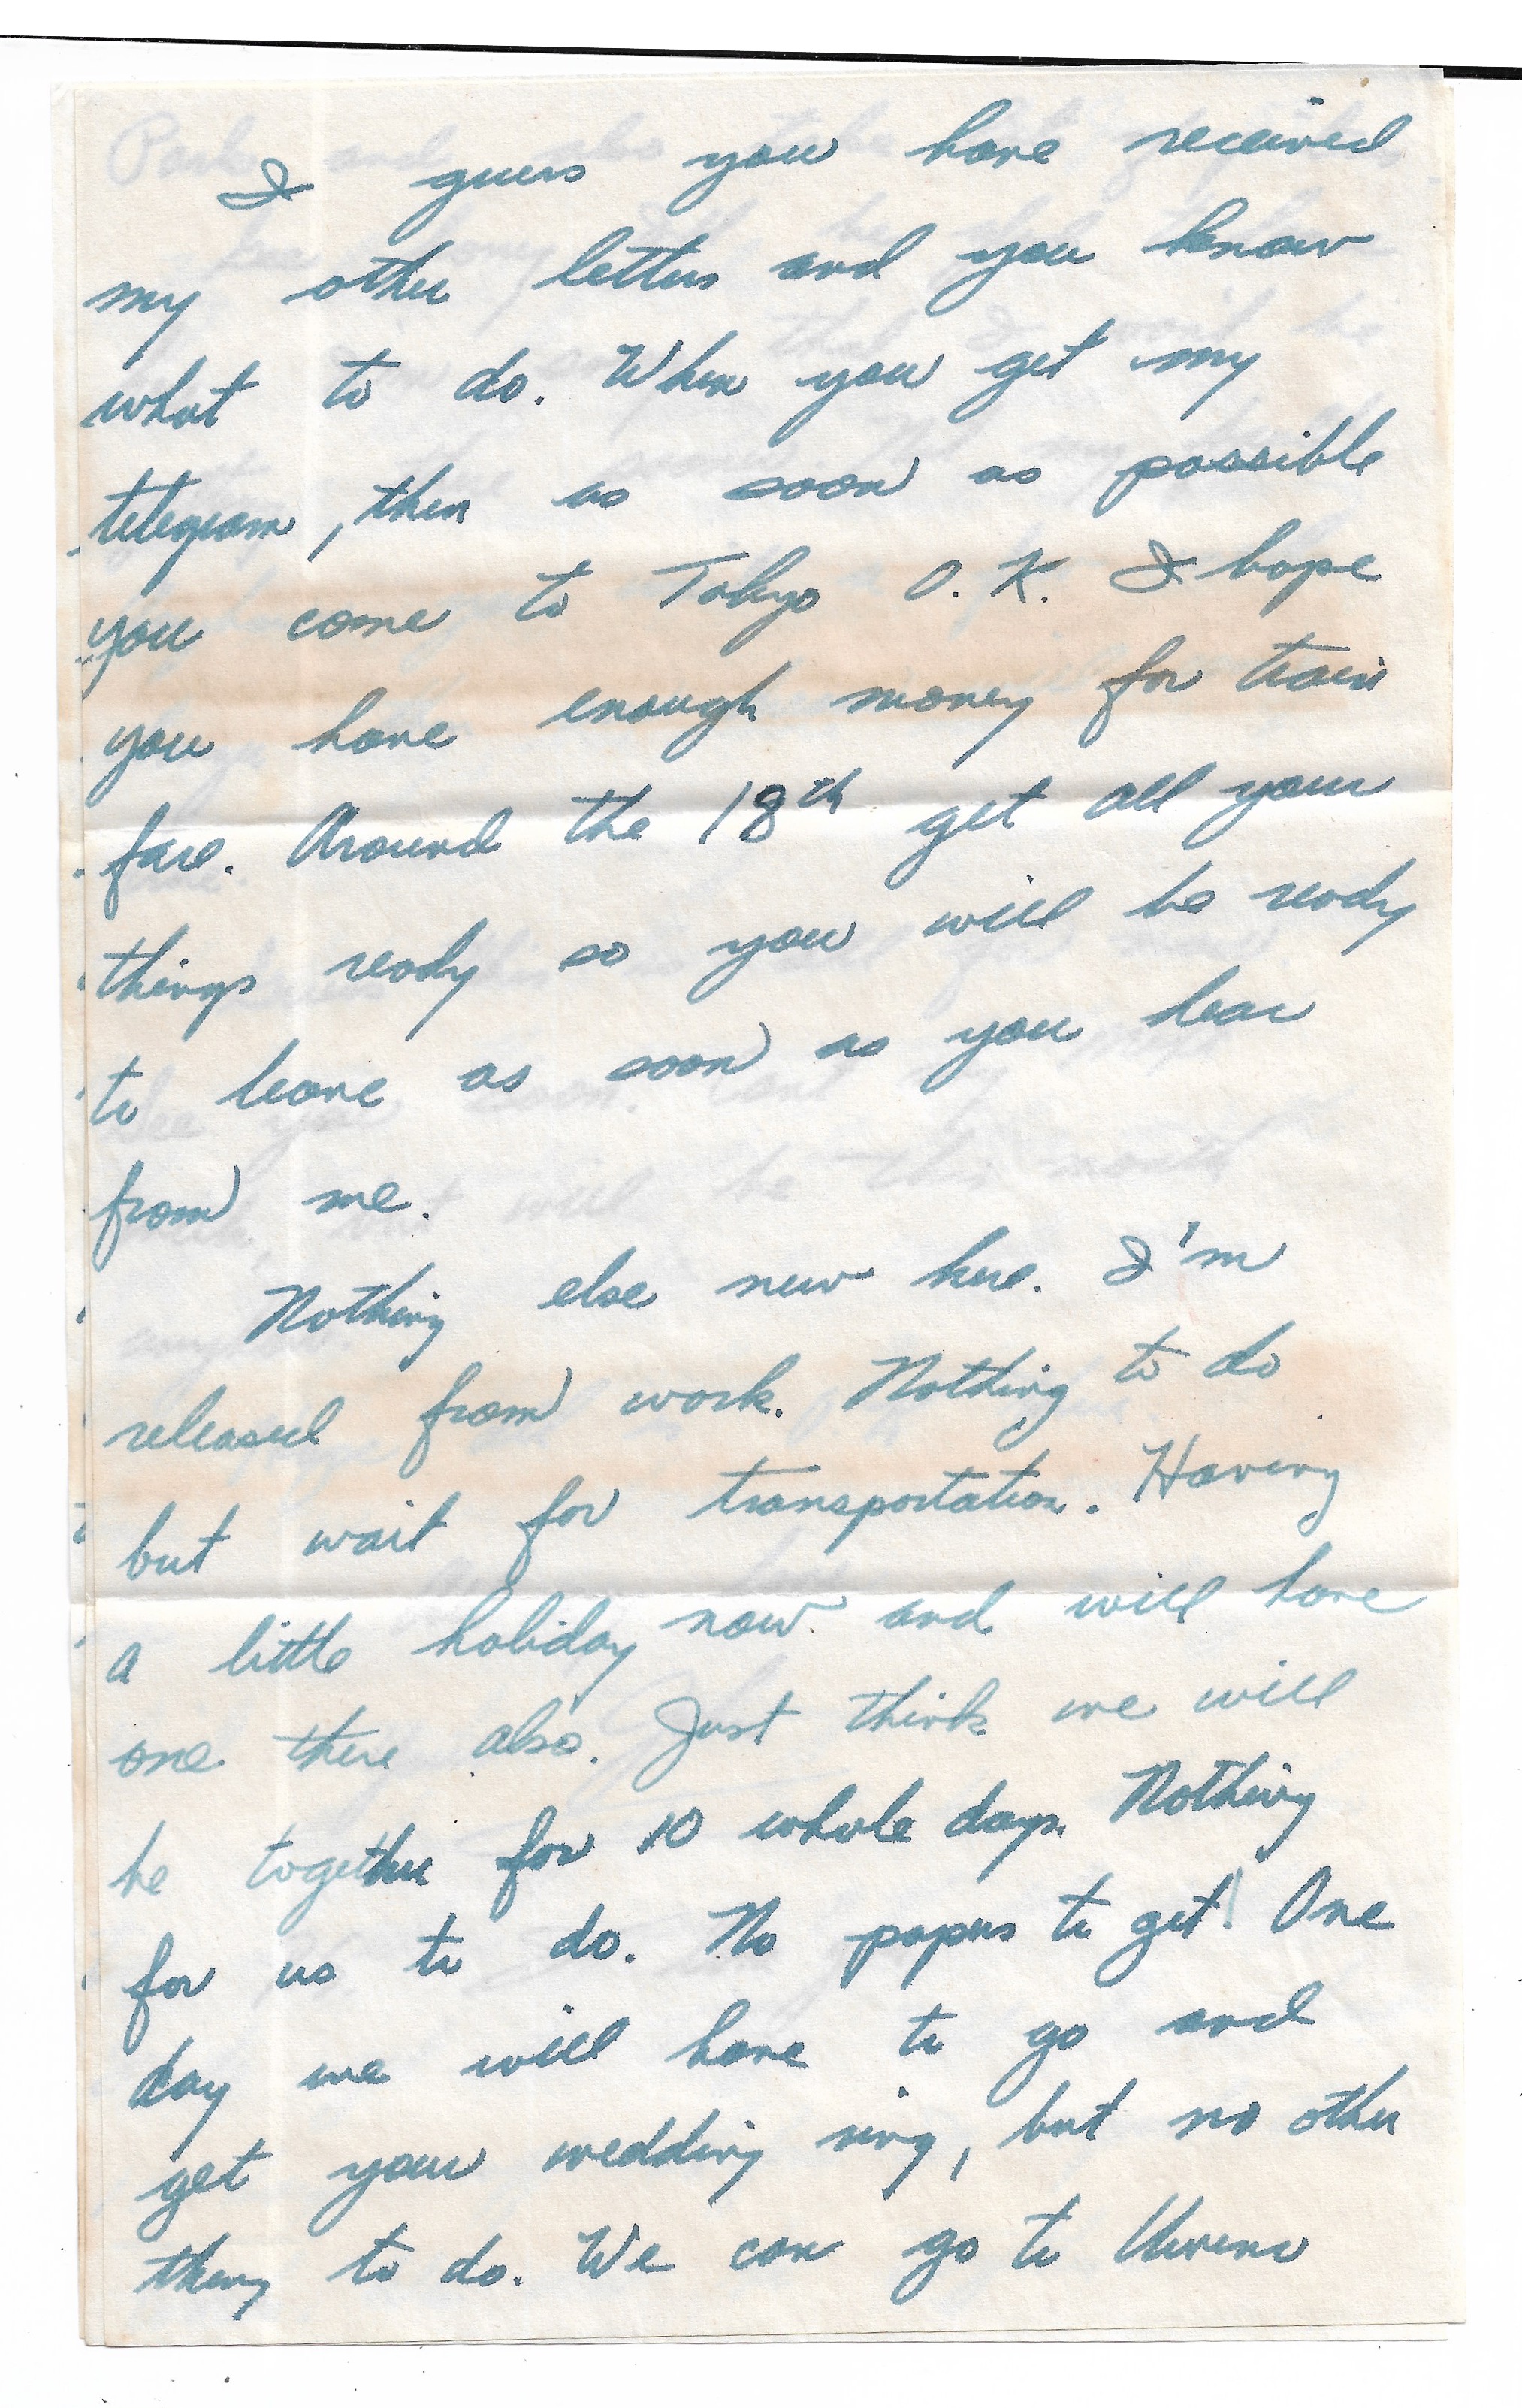 I guess you have received
my other letters and you know
what to do. When you get my
telegram, then as soon as possible
you come to Tokyo O.K. I hope
you have enough money for train
fare. Around the 18th get all your
things ready so you will be ready
to leave as soon as you hear
from me.
Nothing else new here. I'm
released from work. Nothing to do
but wait for transportation. Having
a little holiday now and will have
one there also. Just think we will
be together for 10 whole days. Nothing
for us to do. No papers to get! One
day we will have to go and
get your wedding ring, but no other
thing to do. We can go to